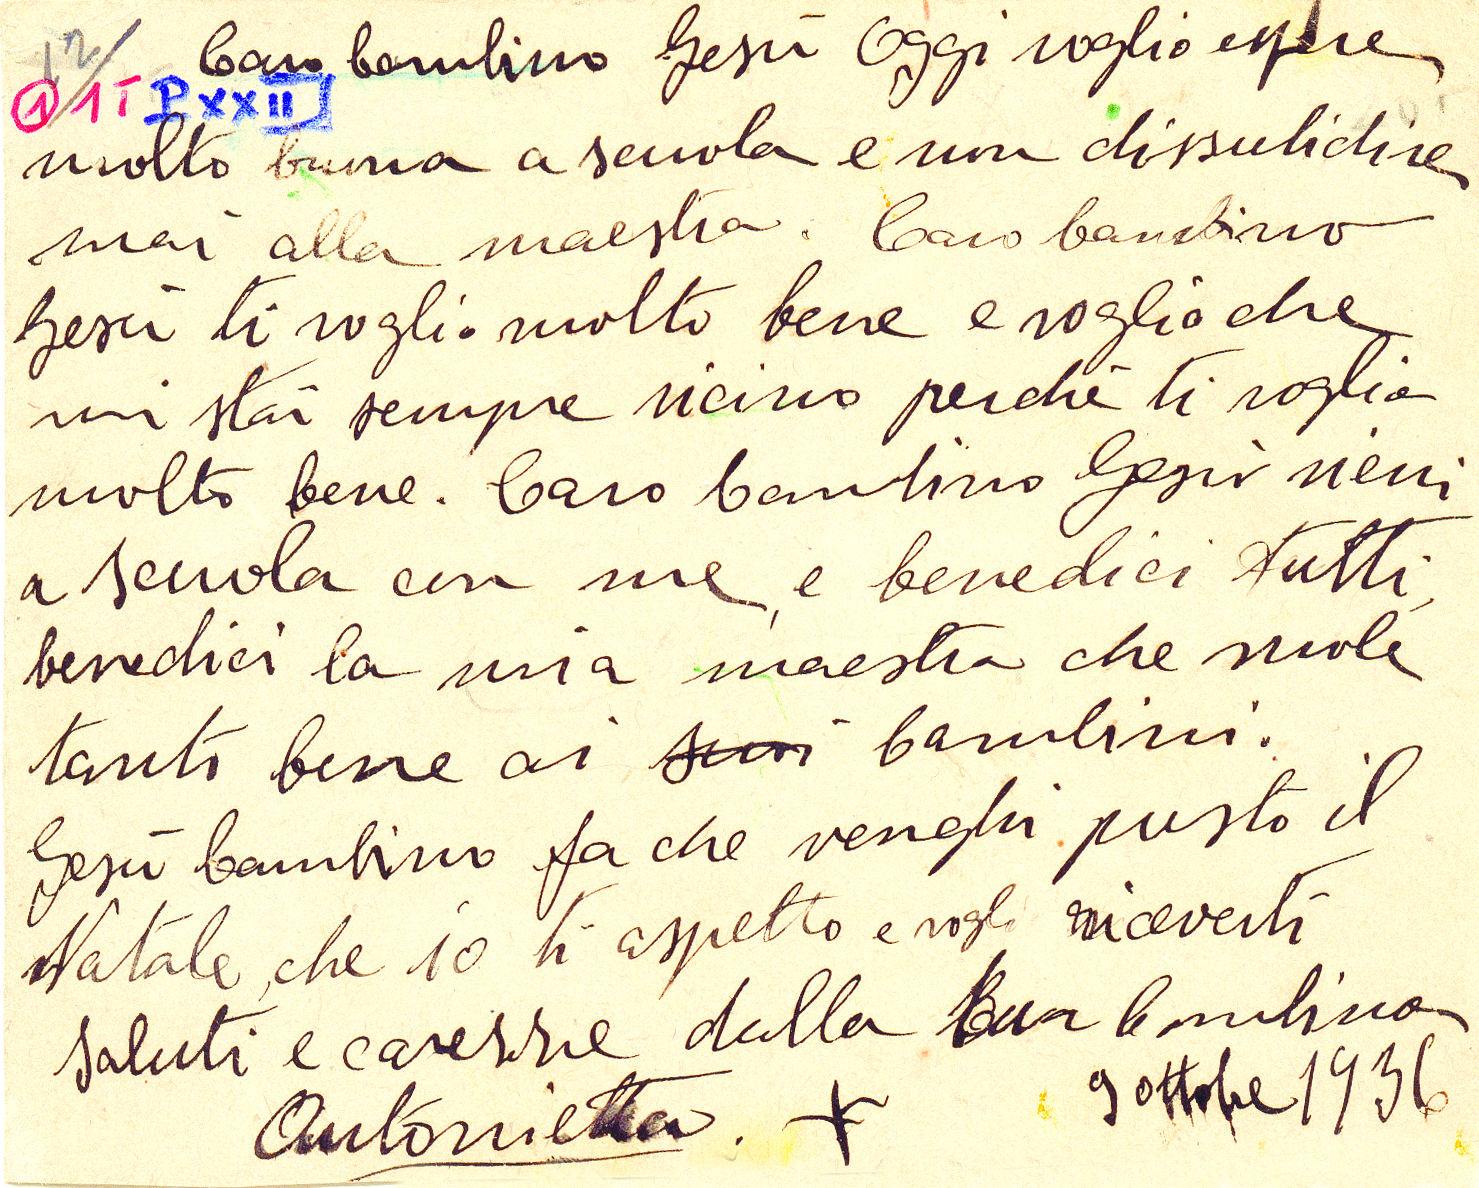 12/
Caro bambino Gesù Oggi voglio essere
① 1T P XXII
molto buona a scuola e non dissubidire
mai alla maestra. Caro bambino
Gesù ti voglio molto bene e voglio che
mi stai sempre vicino perché ti voglio
molto bene. Caro bambino Gesù vieni
a scuola con me, e benedici tutti,
benedici la mia maestra che vuole
tanto bene ai suoi bambini.
Gesù bambino fa che venghi pusto il
Natale, che io ti aspetto e vogli riceverti
saluti e caresse dalla tua bambina
Antonietta. +
9 ottobre 1936